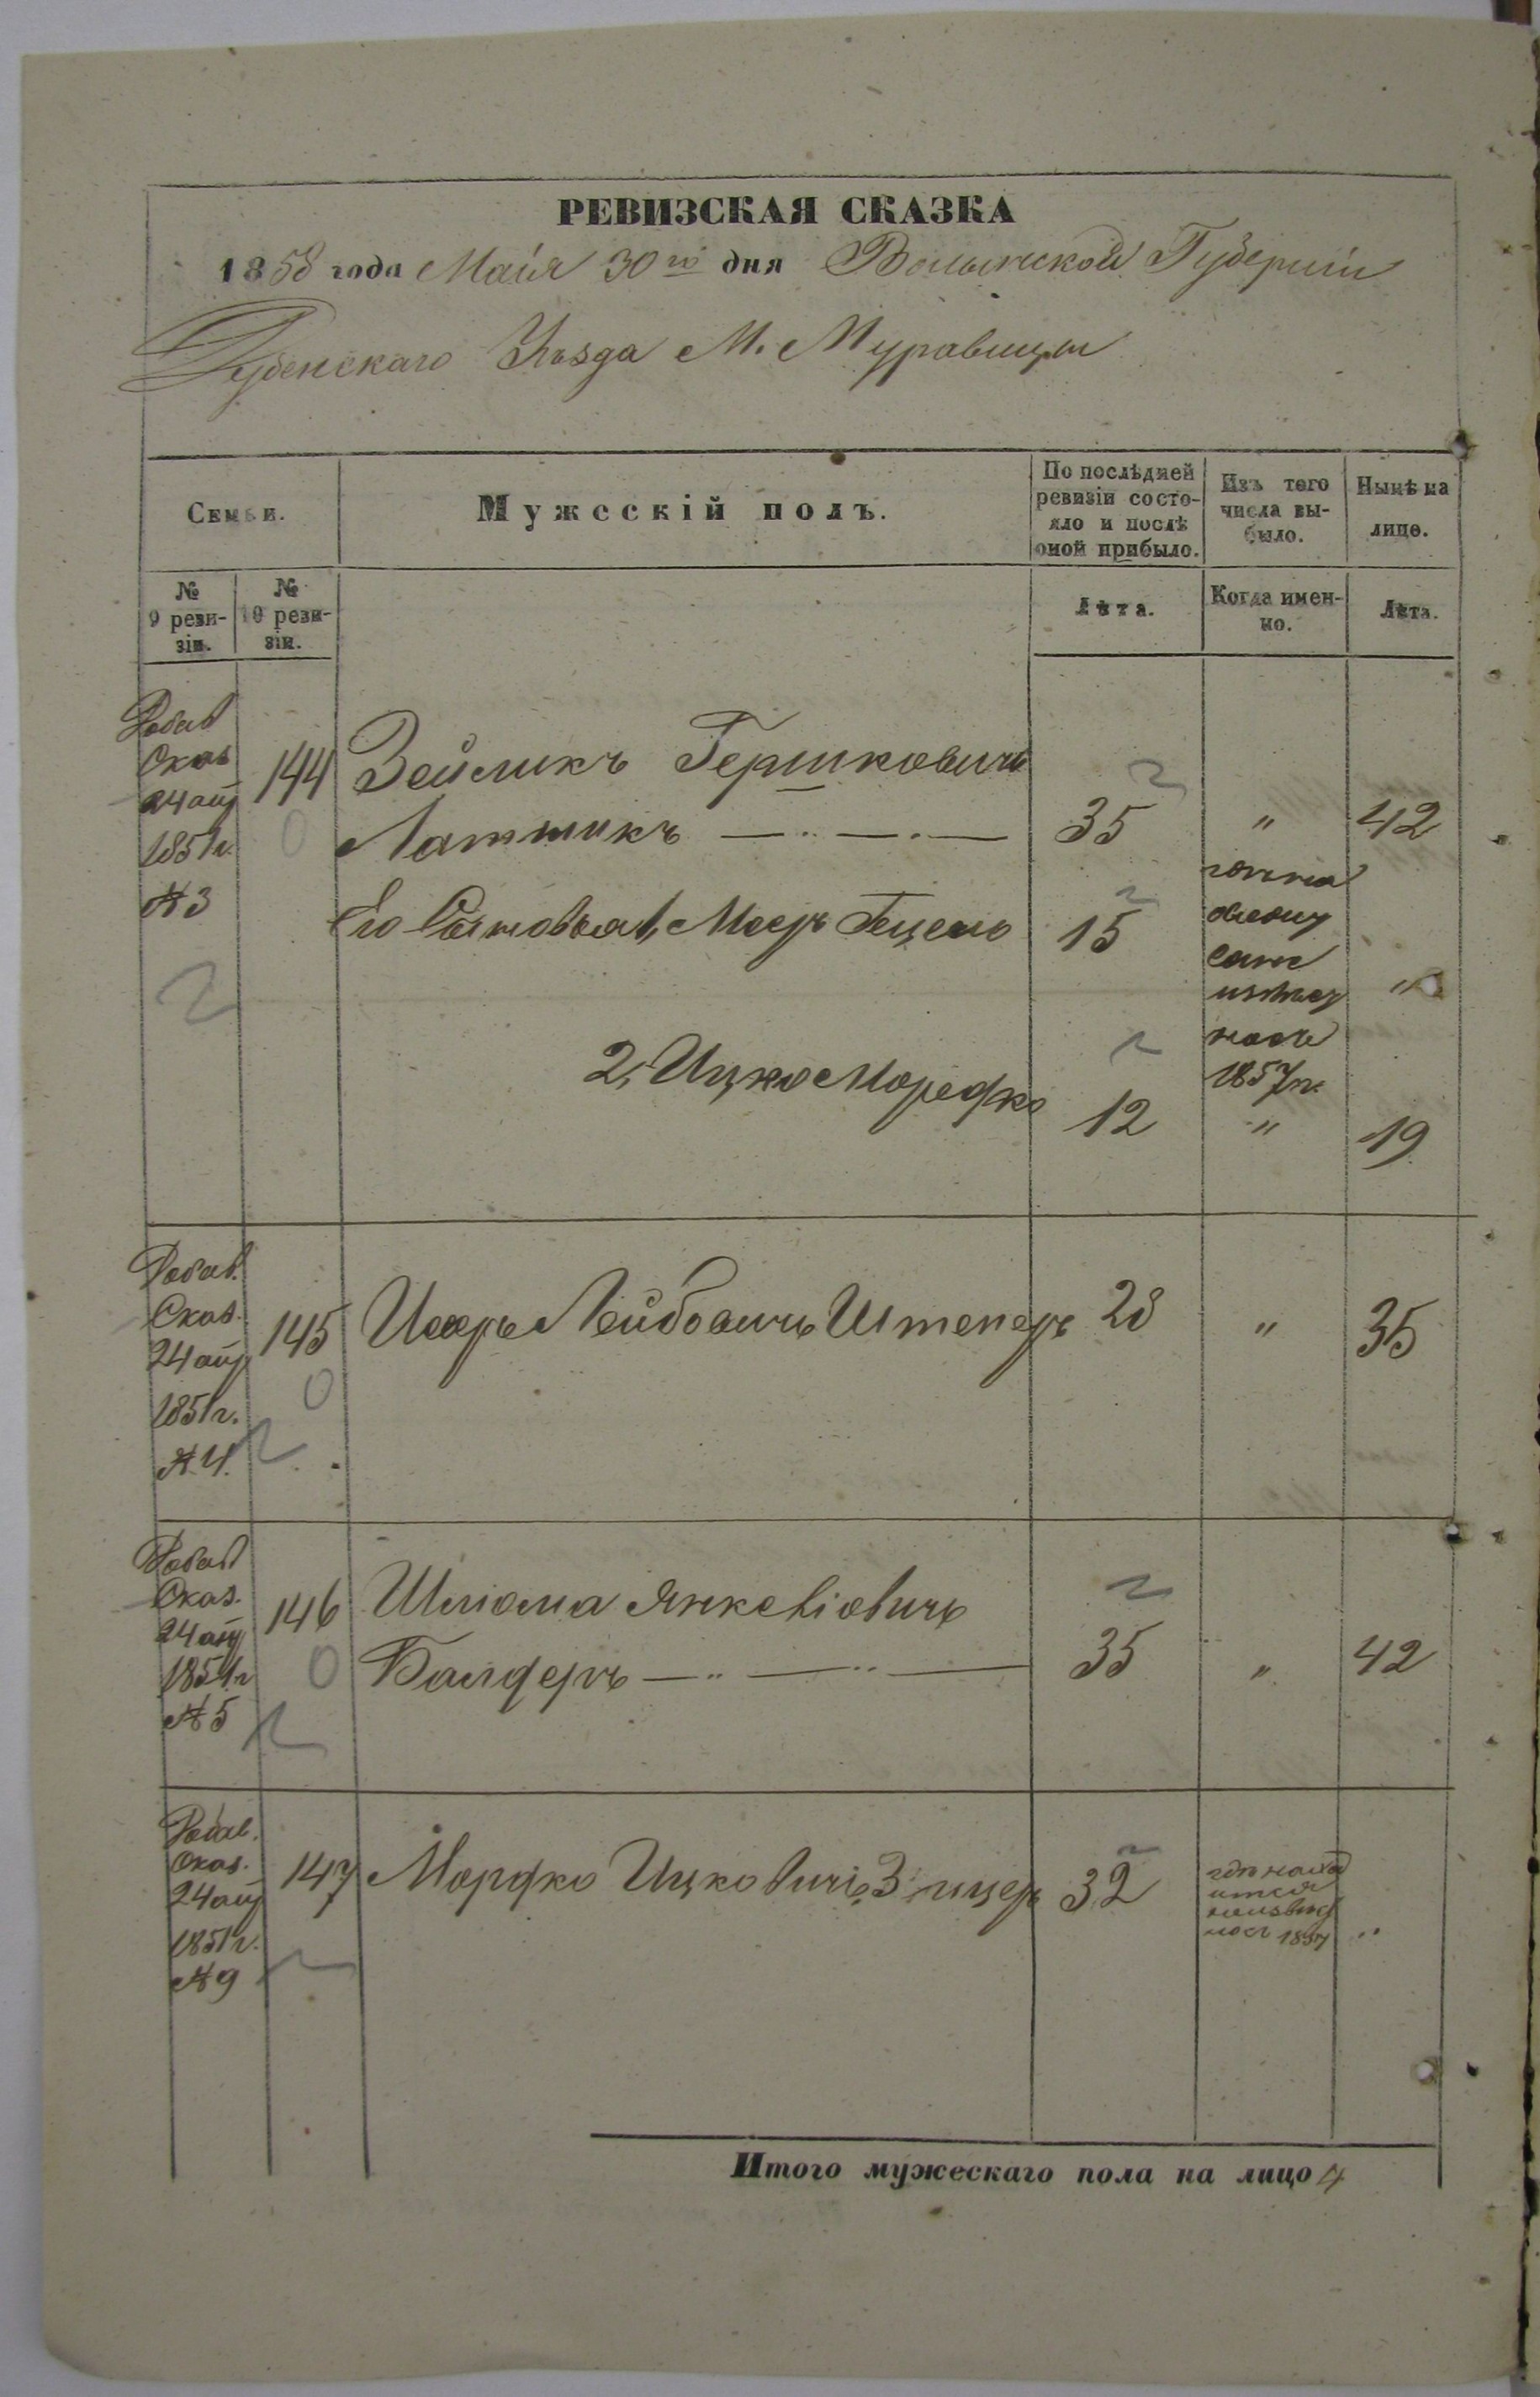 РЕВИЗСКАЯ СКАЗКА
1858 года Маія 30го дня Волынской Губерніи
Дубенскаго Уѣзда М. Муравицы
Семьи.
Мужескій полъ.
По послѣдней ревизіи состо-
яло и послѣ оной прибыло.
Изъ того числа вы-
было.
Нынѣ на лицо.
№ 9 реви-
зіи.
№ 10 реви-
зіи.
Лѣта.
Когда имен-
но.
Лѣта.
Добав
Сказ
24 апр
1851 г.
№ 3
144
Зейликъ Гершковичъ
35 " 42
Его Сыновья 1, Мееръ Гецель
15
1857 г.
"
2, Ицко Мордко
12 " 19
Добав.
Сказ.
24 апр
1851 г.
№ 4.
145
Лейбовичъ Штеперъ 28 " 35
Добав
Сказ.
24 апр
1851 г
№ 5
146
Шлиома Янкеліовичъ
Балдеръ — " — " — 35 " 42
Добав.
Сказ.
24 апр
1851 г.
№ 9
147
Мордко Ицковичъ 32
1857 "
Итого мужескаго пола на лицо 4